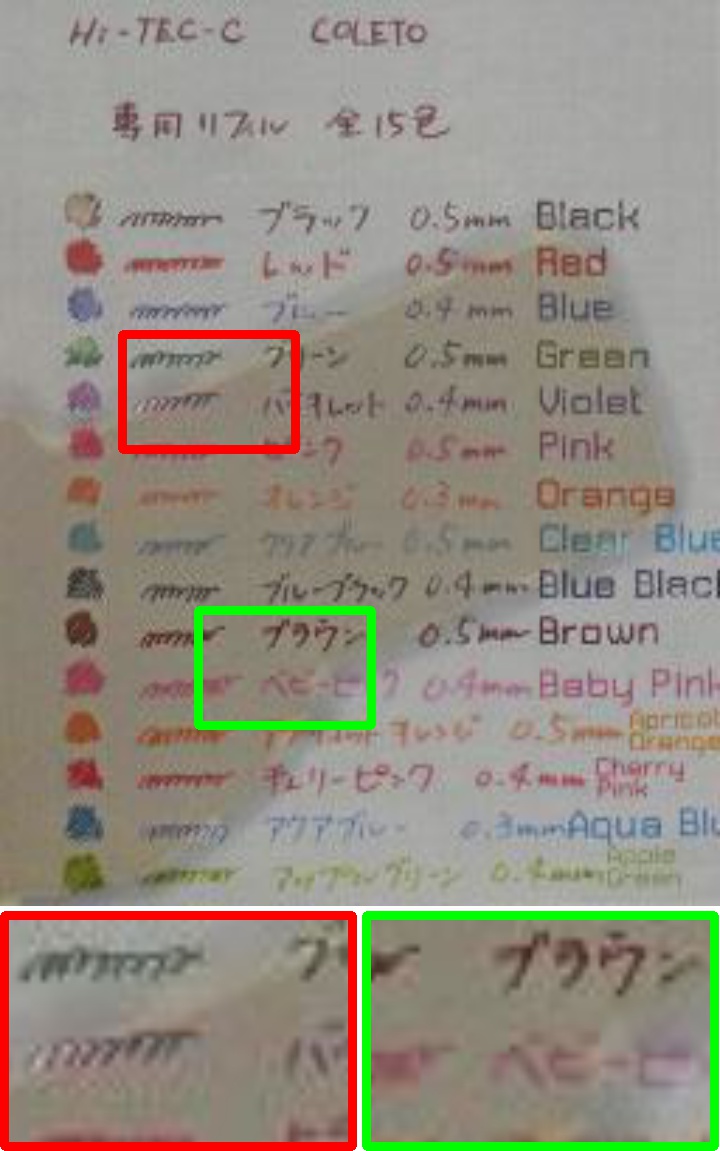 Hi-TEC-C COLETO
専用リフィル 全15色
ブラック 0.5mm Black
レッド 0.5mm Red
ブルー 0.4mm Blue
グリーン 0.5mm Green
バイオレット 0.4mm Violet
ピンク 0.5mm Pink
オレンジ 0.3mm Orange
クリアブルー 0.5mm Clear Blue
ブルーブラック 0.4mm Blue Black
ブラウン 0.5mm Brown
ベビーピンク 0.4mm Baby Pink
アプリコットオレンジ 0.5mm Apricot Orange
チェリーピンク 0.4mm Cherry Pink
アクアブルー 0.3mm Aqua Blu
アップルグリーン 0.4mm Apple Green
ブ
バ
ブラウン
ベビーピ